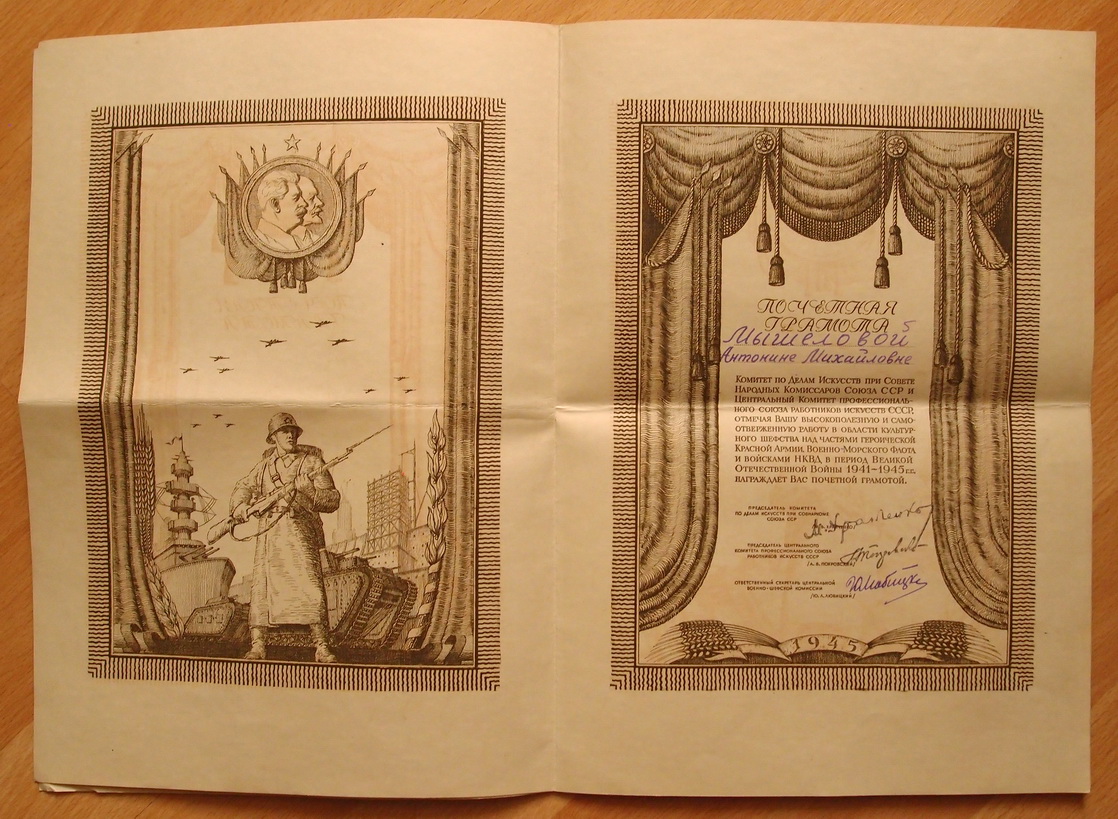 ПОЧЕТНАЯ
ГРАМОТА
Мышеловой
Антонине Михайловне
Комитет по Делам Искусств при Совете
Народных Комиссаров Союза ССР и
Центральный Комитет профессиональ-
ного союза работников искусств СССР,
отмечая Вашу высокополезную и само-
отверженную работу в области культур-
ного шефства над частями героической
Красной Армии, Военно-Морского Флота
и войсками НКВД в период Великой
Отечественной Войны 1941–1945 гг.
награждает Вас почетной грамотой.
ПРЕДСЕДАТЕЛЬ КОМИТЕТА
ПО ДЕЛАМ ИСКУССТВ ПРИ СОВНАРКОМЕ
СОЮЗА ССР
ПРЕДСЕДАТЕЛЬ ЦЕНТРАЛЬНОГО
КОМИТЕТА ПРОФЕССИОНАЛЬНОГО СОЮЗА
РАБОТНИКОВ ИСКУССТВ СССР
/А. В. ПОКРОВСКИЙ/
ОТВЕТСТВЕННЫЙ СЕКРЕТАРЬ ЦЕНТРАЛЬНОЙ
ВОЕННО-ШЕФСКОЙ КОМИССИИ
/Ю. Л. ЛЮБИЦКИЙ/
1945